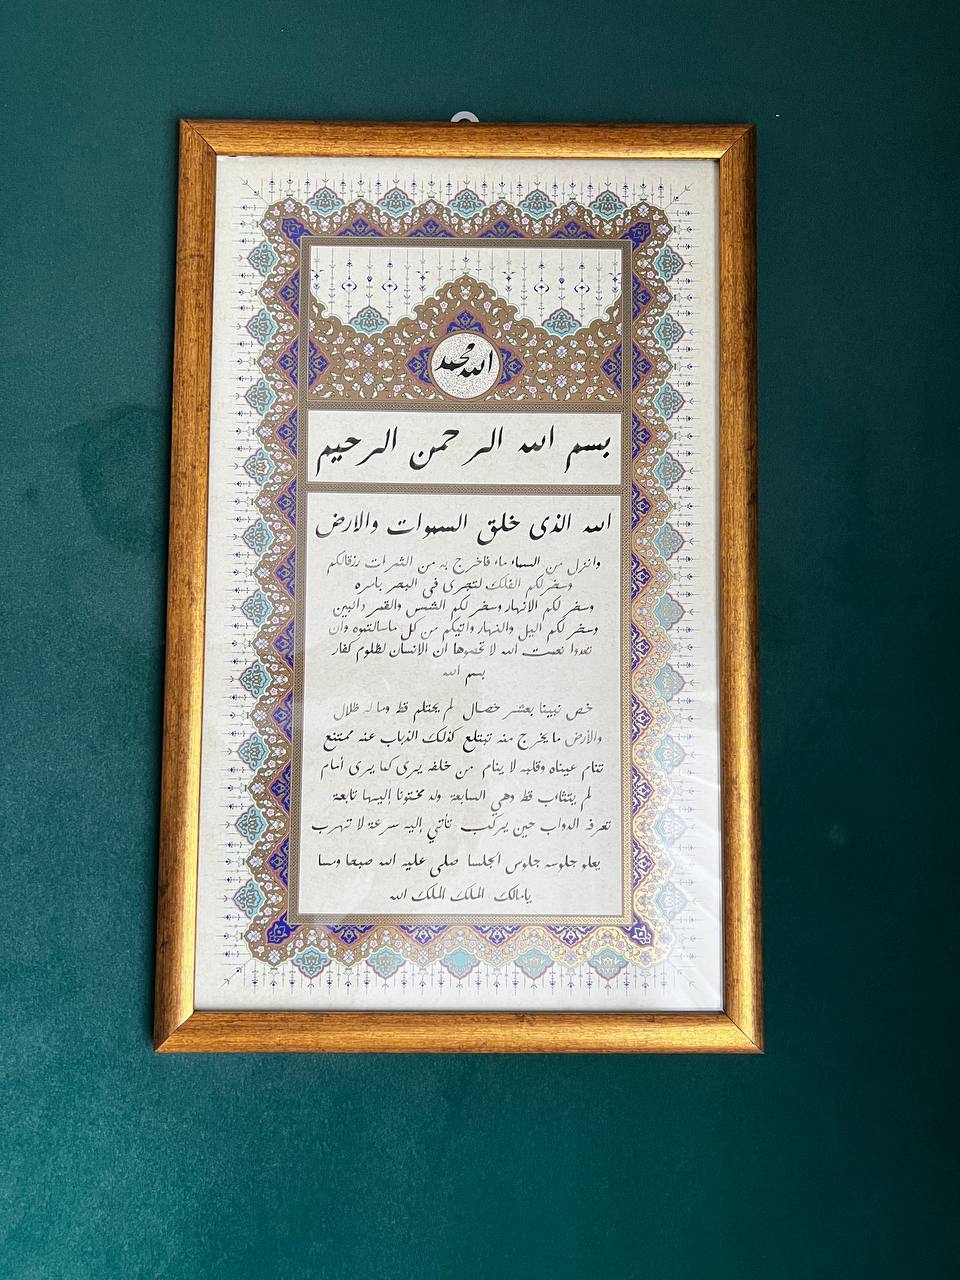 الله محمد
بسم الله الرحمن الرحيم
الله الذى خلق السموات والارض
وانزل من السماء ماء فاخرج به من الثمرات رزقالكم
وسخر لكم الفلك لتجرى فى البحر بامره
وسخر لكم الانهار وسخر لكم الشمس والقمر دائبين
وسخر لكم اليل والنهار واتيكم من كل ماسالتموه وان
تعدوا نعمت الله لا تحصوها ان الانسان لظلوم كفار
بسم الله
خص نبينا بعشر خصال لم يحتلم قط وماله ظلال
والأرض ما يخرج منه تبتلع كذلك الذباب عنه ممتنع
تنام عيناه وقلبه لا ينام من خلفه يرى كما يرى أمام
لم يتثائب قط وهي السابعة ولد مختونا إليها تابعة
تعرفه الدواب حين يركب تأتي إليه سرعة لا تهرب
يعلو جلوسه جلوس الجلسا صلى عليه الله صبحا ومسا
يامالك الملك الملك الله